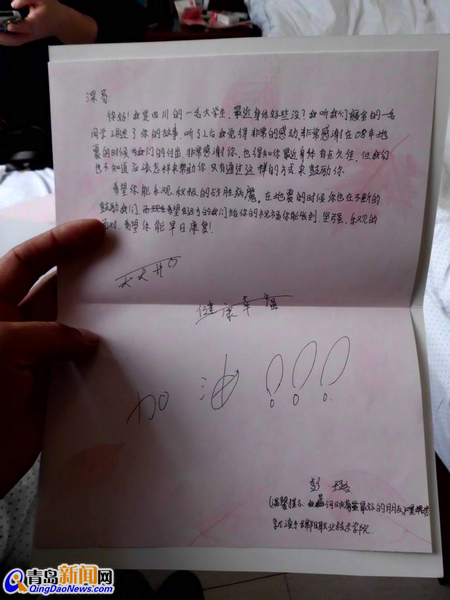 深哥
你好!我是四川的一名大学生,最近身体好些没?我听我们宿舍的一名
同学讲述了你的故事,听了之后我觉得非常的感动,非常感谢在08年地
震的时候为我们的付出,非常感谢你,也得知你最近身体有点欠佳,但我们
也不知道应该怎样来帮助你,只有通过这样的方式来鼓励你。
希望你能乐观、积极的战胜病魔。在地震的时候你也在不断的
鼓励我们,希望远方的我们给你的祝福你能收到 坚强、乐观的
希望你能早日康复!
天天开心
健康幸福
加油!!!
彭
青岛新闻网
QingDaoNews.com